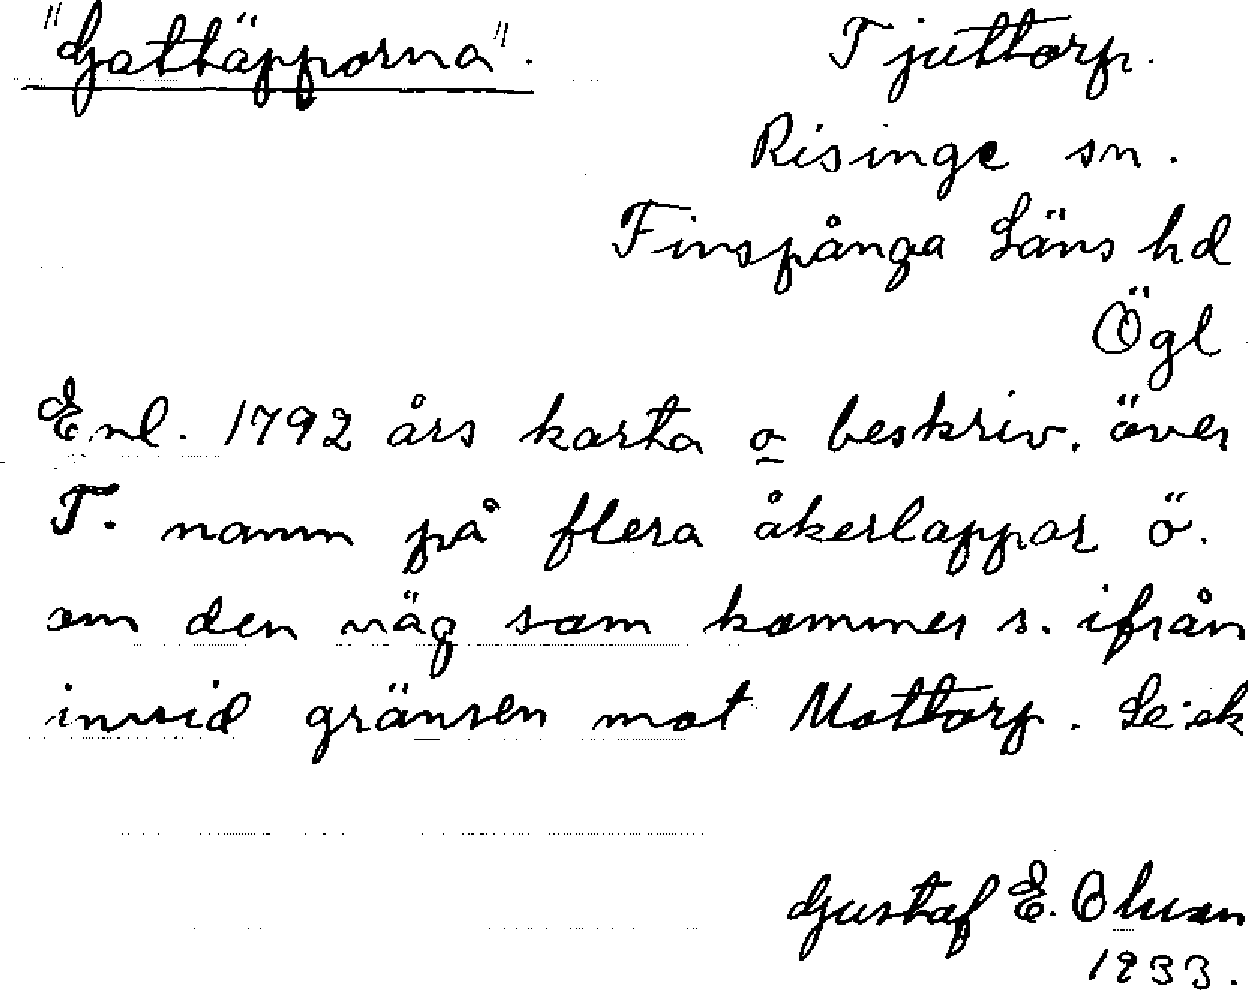 "Gattäpporna". Tjuttorp.
Risinge sn.
Finspånga Läns hd
Ögl
Enl. 1792 års karta o beskriv. över
T. namn på flera åkerlappar ö.
om den väg som kommer s. ifrån
invid gränsen mot Mottorp. Se ek
Gustaf E. Olsson
1933.